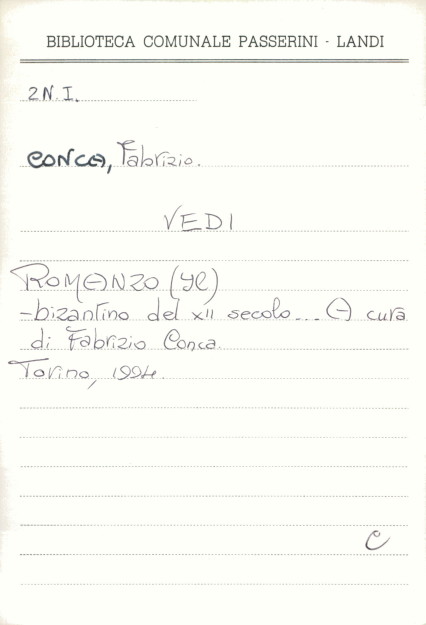 BIBLIOTECA COMUNALE PASSERINI - LANDI
2N.I.
CONCA, Fabrizio.
VEDI
ROMANZO (Il)
-bizantino del XII secolo... A cura
di Fabrizio Conca.
Torino, 1994.
C